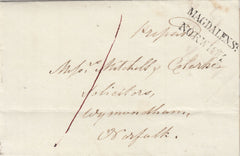 Prepaid
MAGDALEN ST
NORWICH
Messrs Mitchell & Clarke
Solicitors,
Wymondham,
Norfolk.